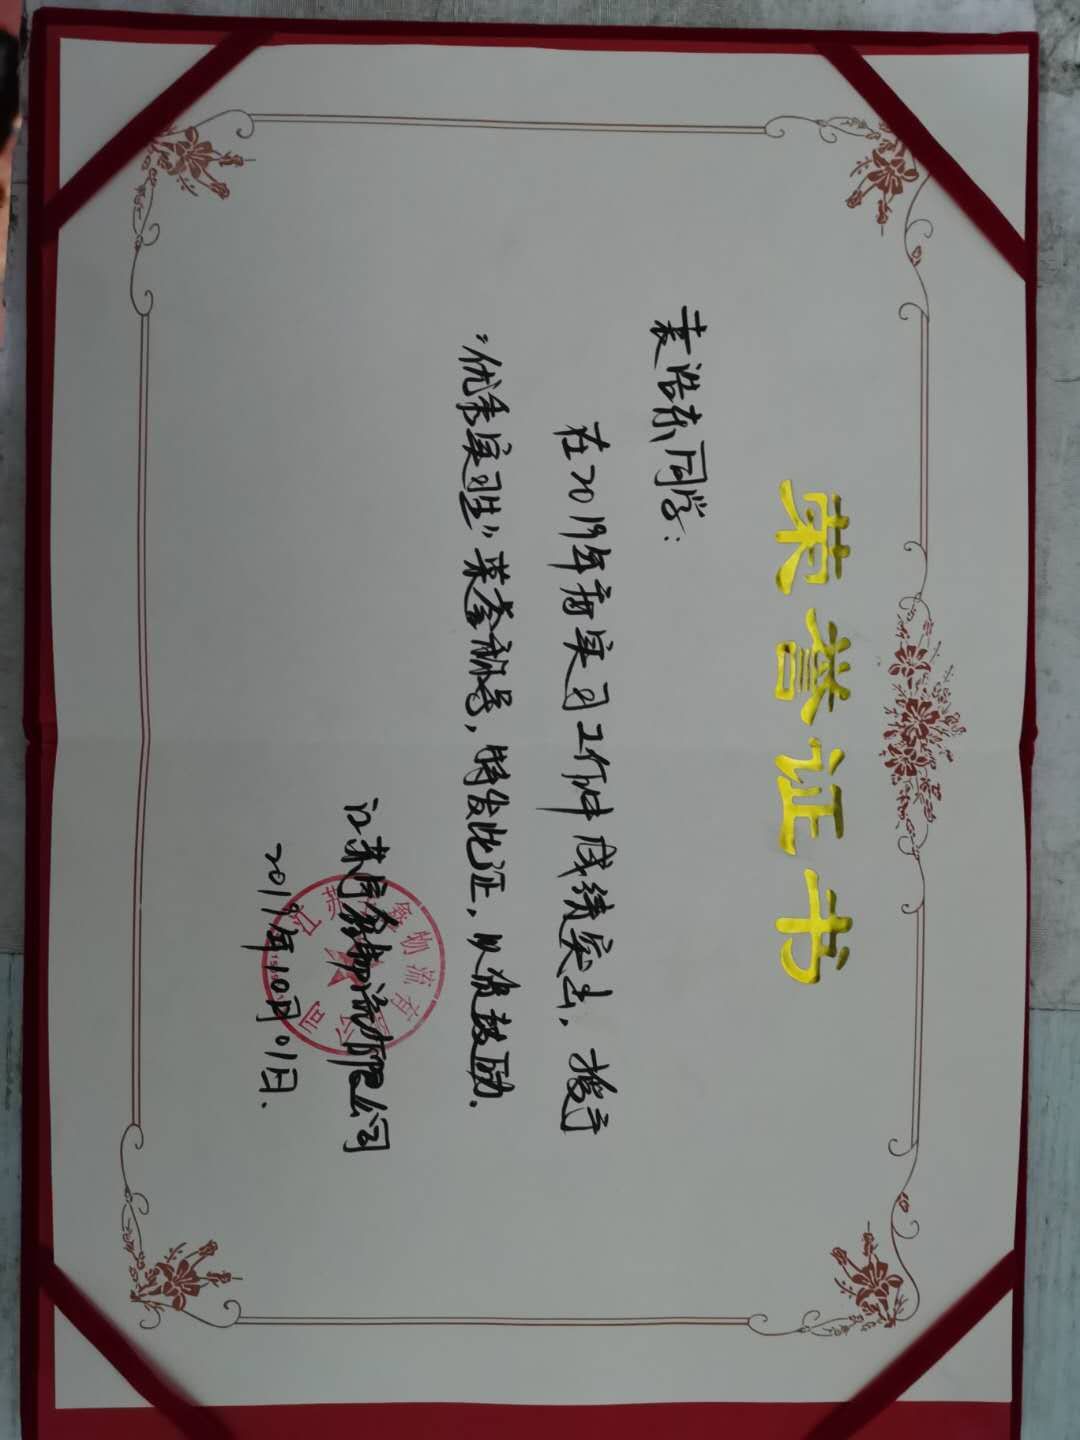 荣誉证书
袁浩东同学:
在2019年度实习工作中成绩突出，授予
“优秀实习生”荣誉称号，特发此证，以资鼓励.
物流有限公司
2019年10月01日.